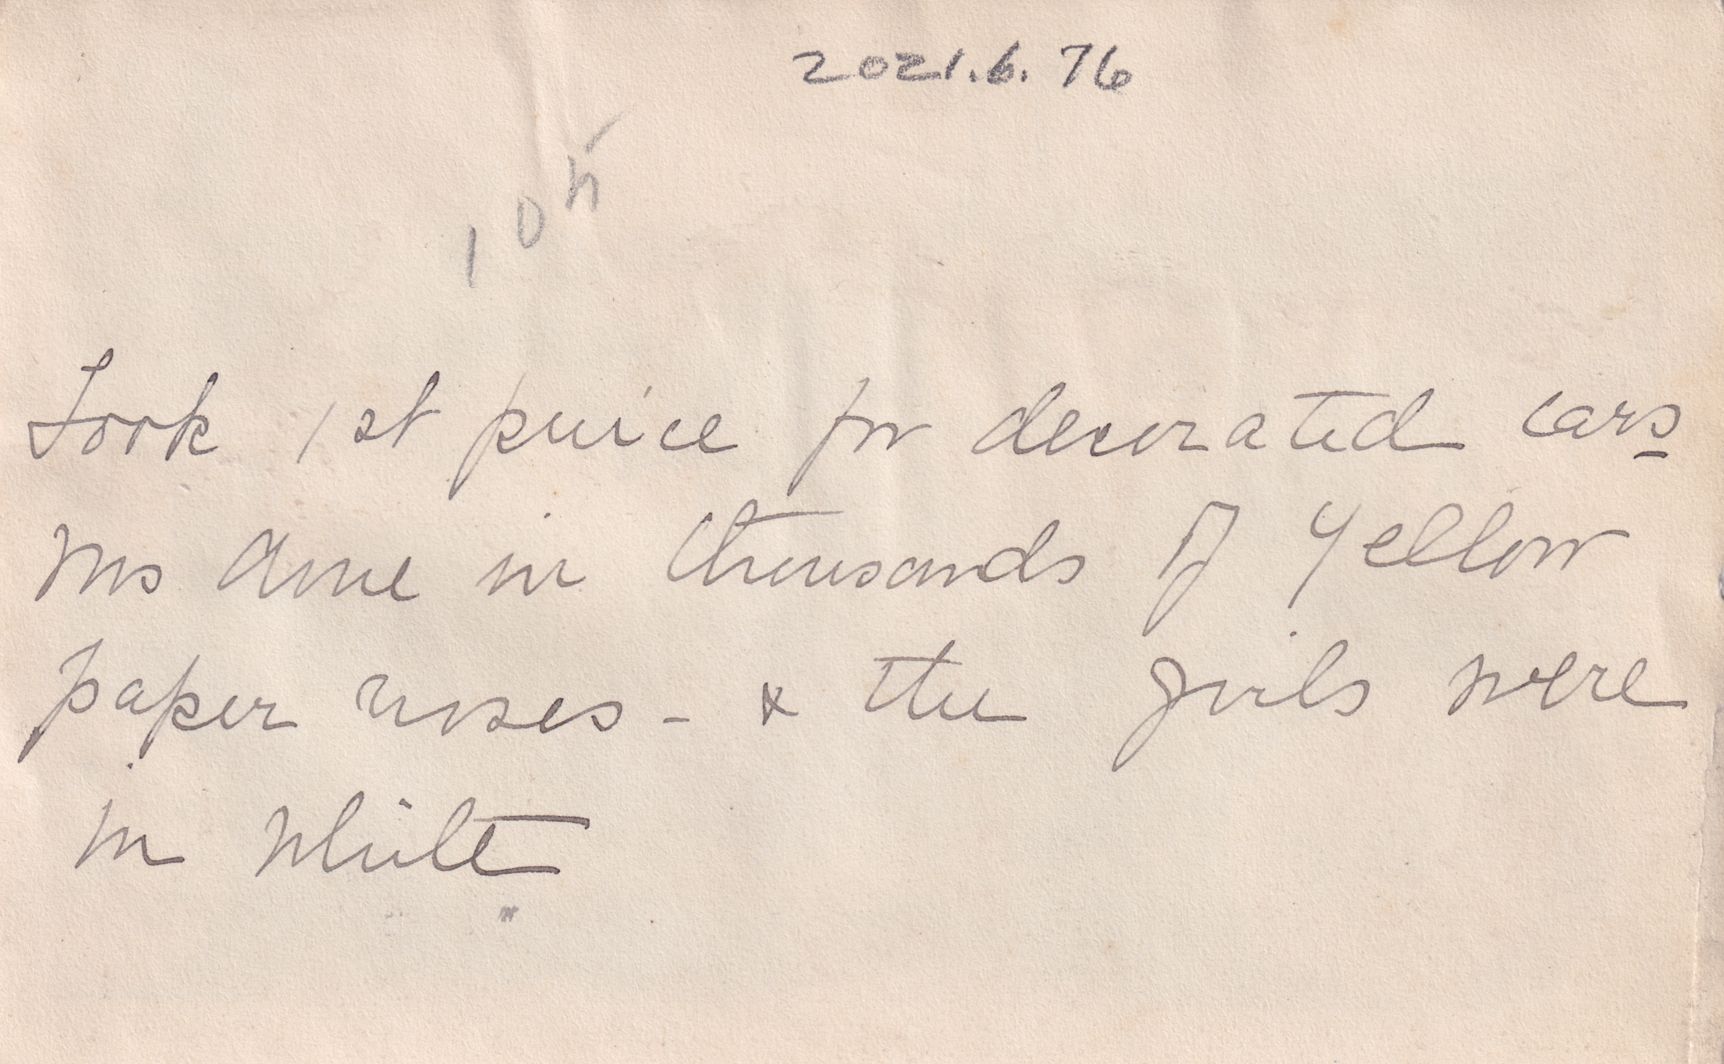 2021.6.76
10
Took 1st price for decorated cars
was done in thousands of yellow
paper roses - & the girls were
in white